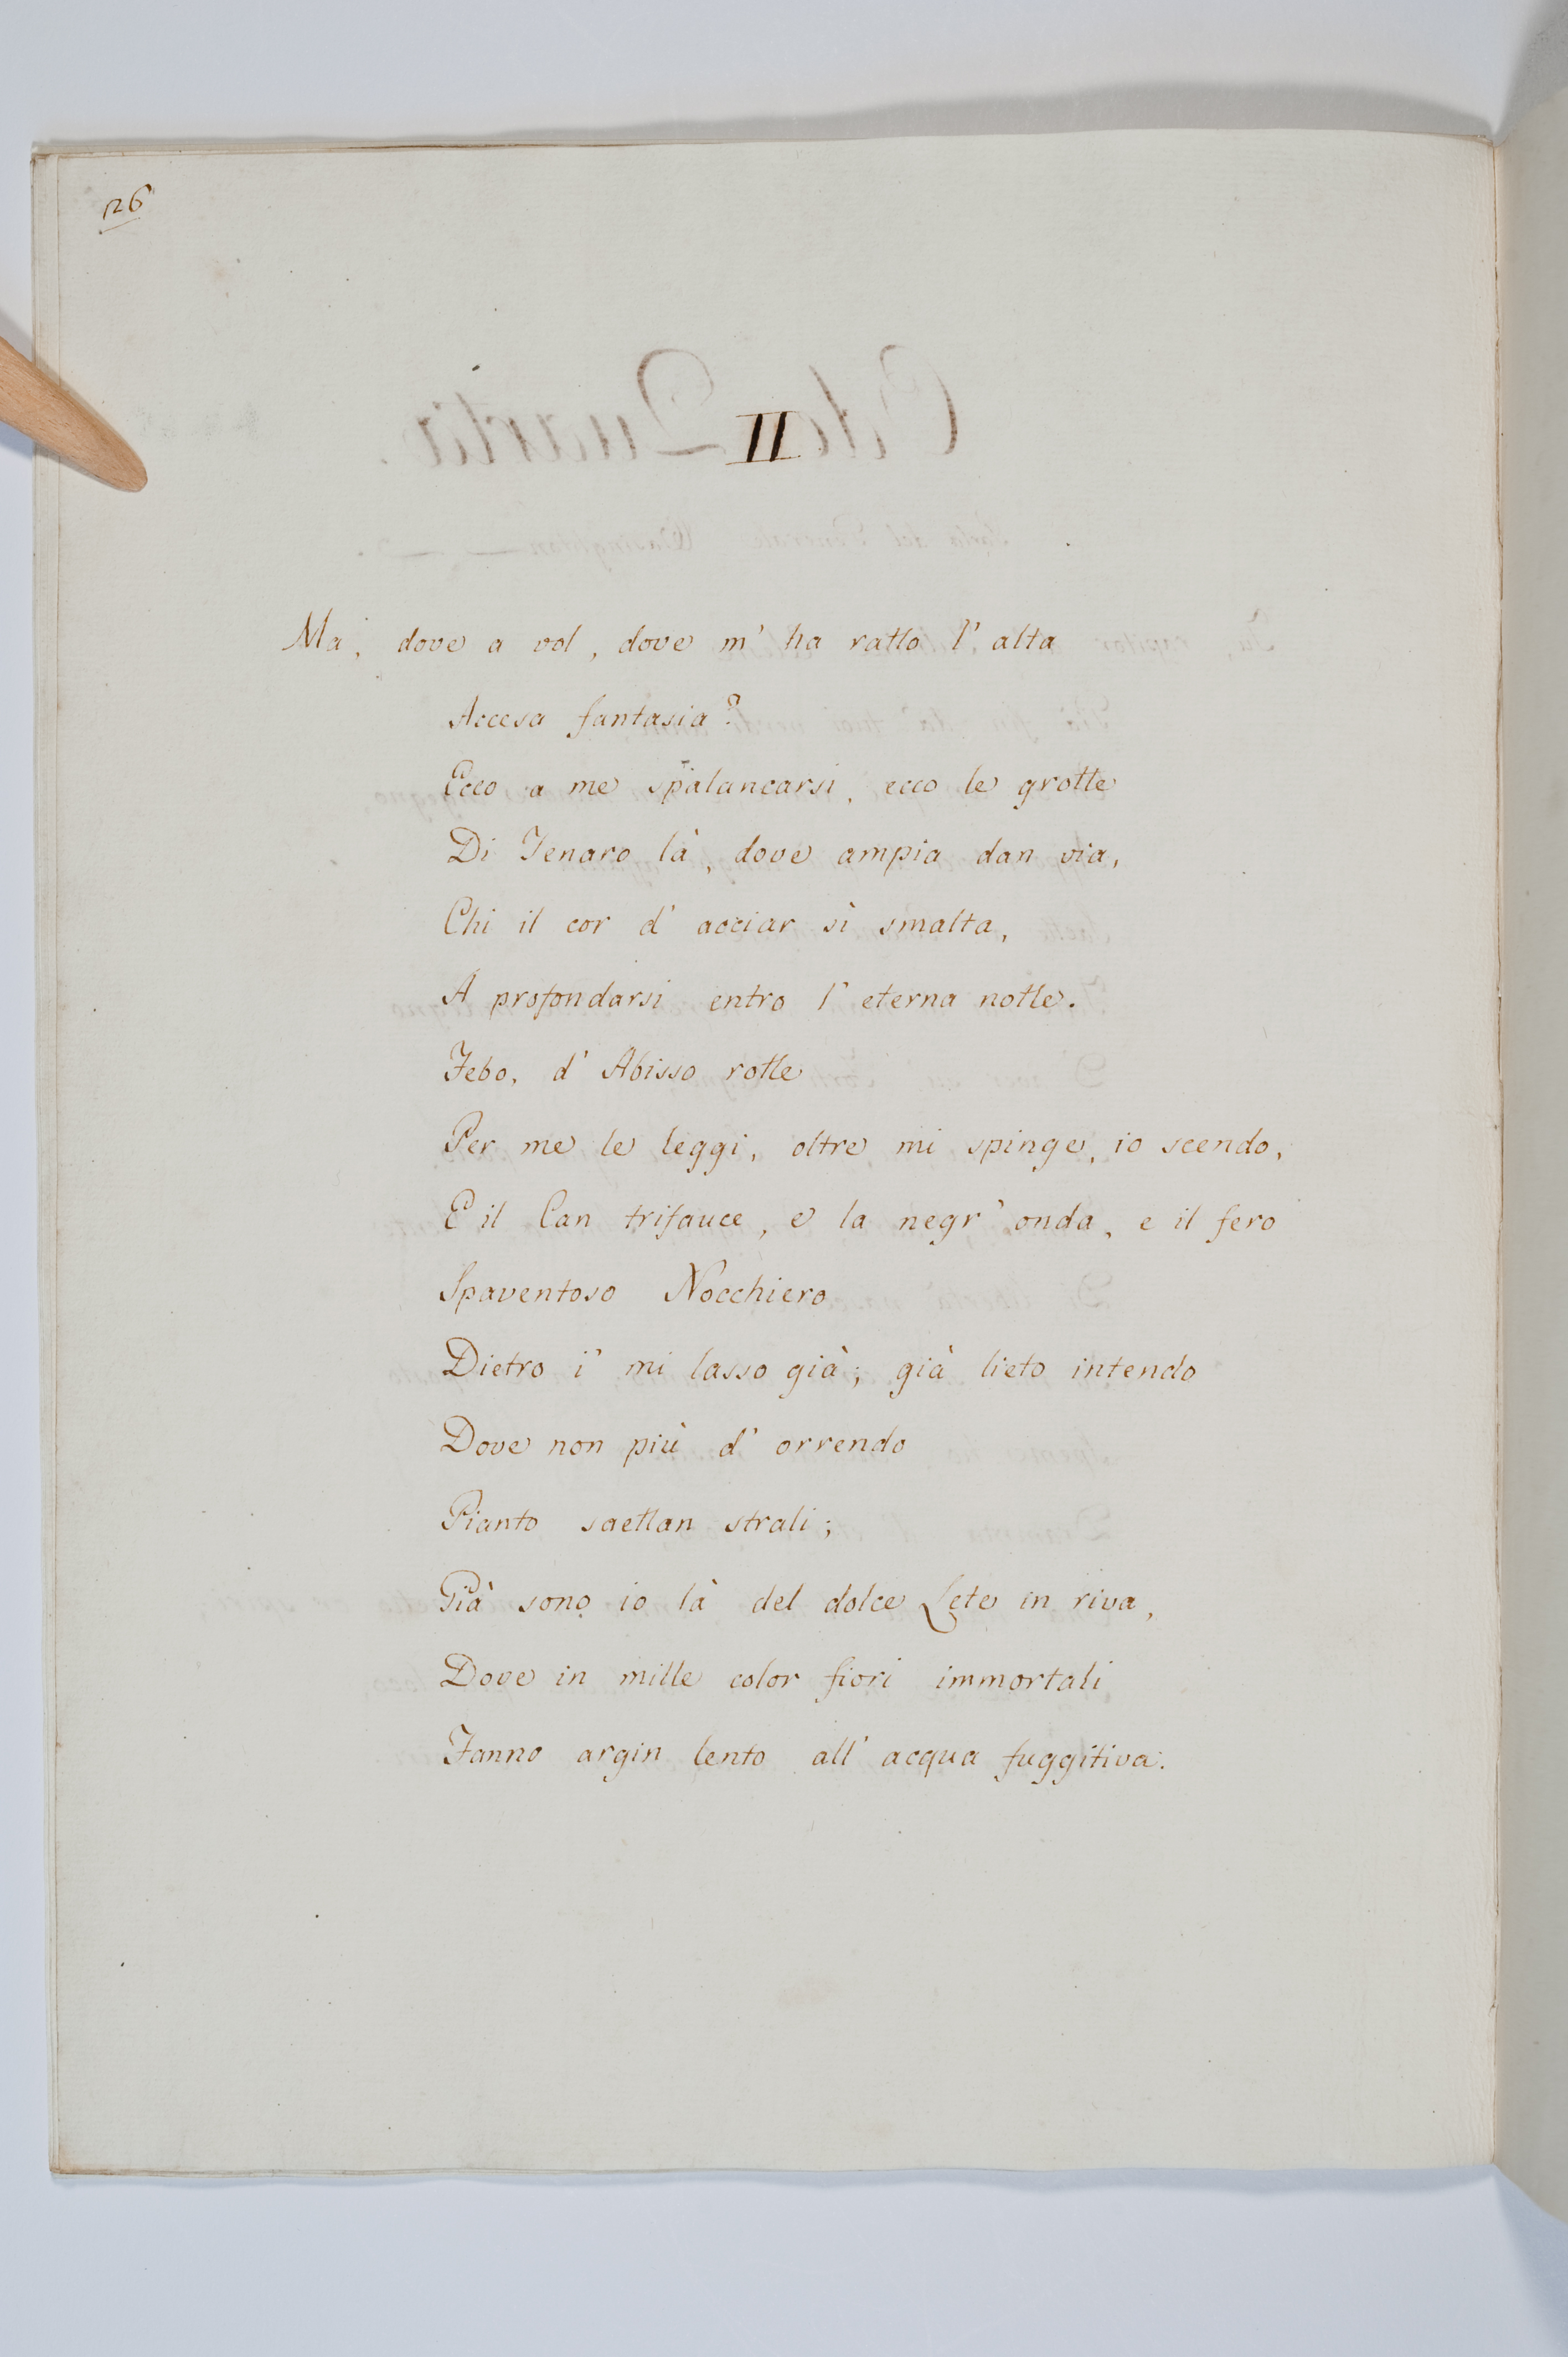 126
II
Ma, dove a vol, dove m' ha ratto l' alta
Accesa fantasia?
Ecco a me spalancarsi, ecco le grotte
Di Tenaro là, dove ampia dan via,
Chi il cor d' acciar sì smalta,
A profondarsi entro l' eterna notte.
Febo, d' Abisso rotte
Per me le leggi, oltre mi spinge, io scendo,
E il Can trifauce, e la negr' onda, e il fero
Spaventoso Nocchiero
Dietro i' mi lasso già; già lieto intendo
Dove non più d' orrendo
Pianto saettan strali;
Già sono io là del dolce Lete in riva,
Dove in mille color fiori immortali
Fanno argin lento all' acqua fuggitiva.